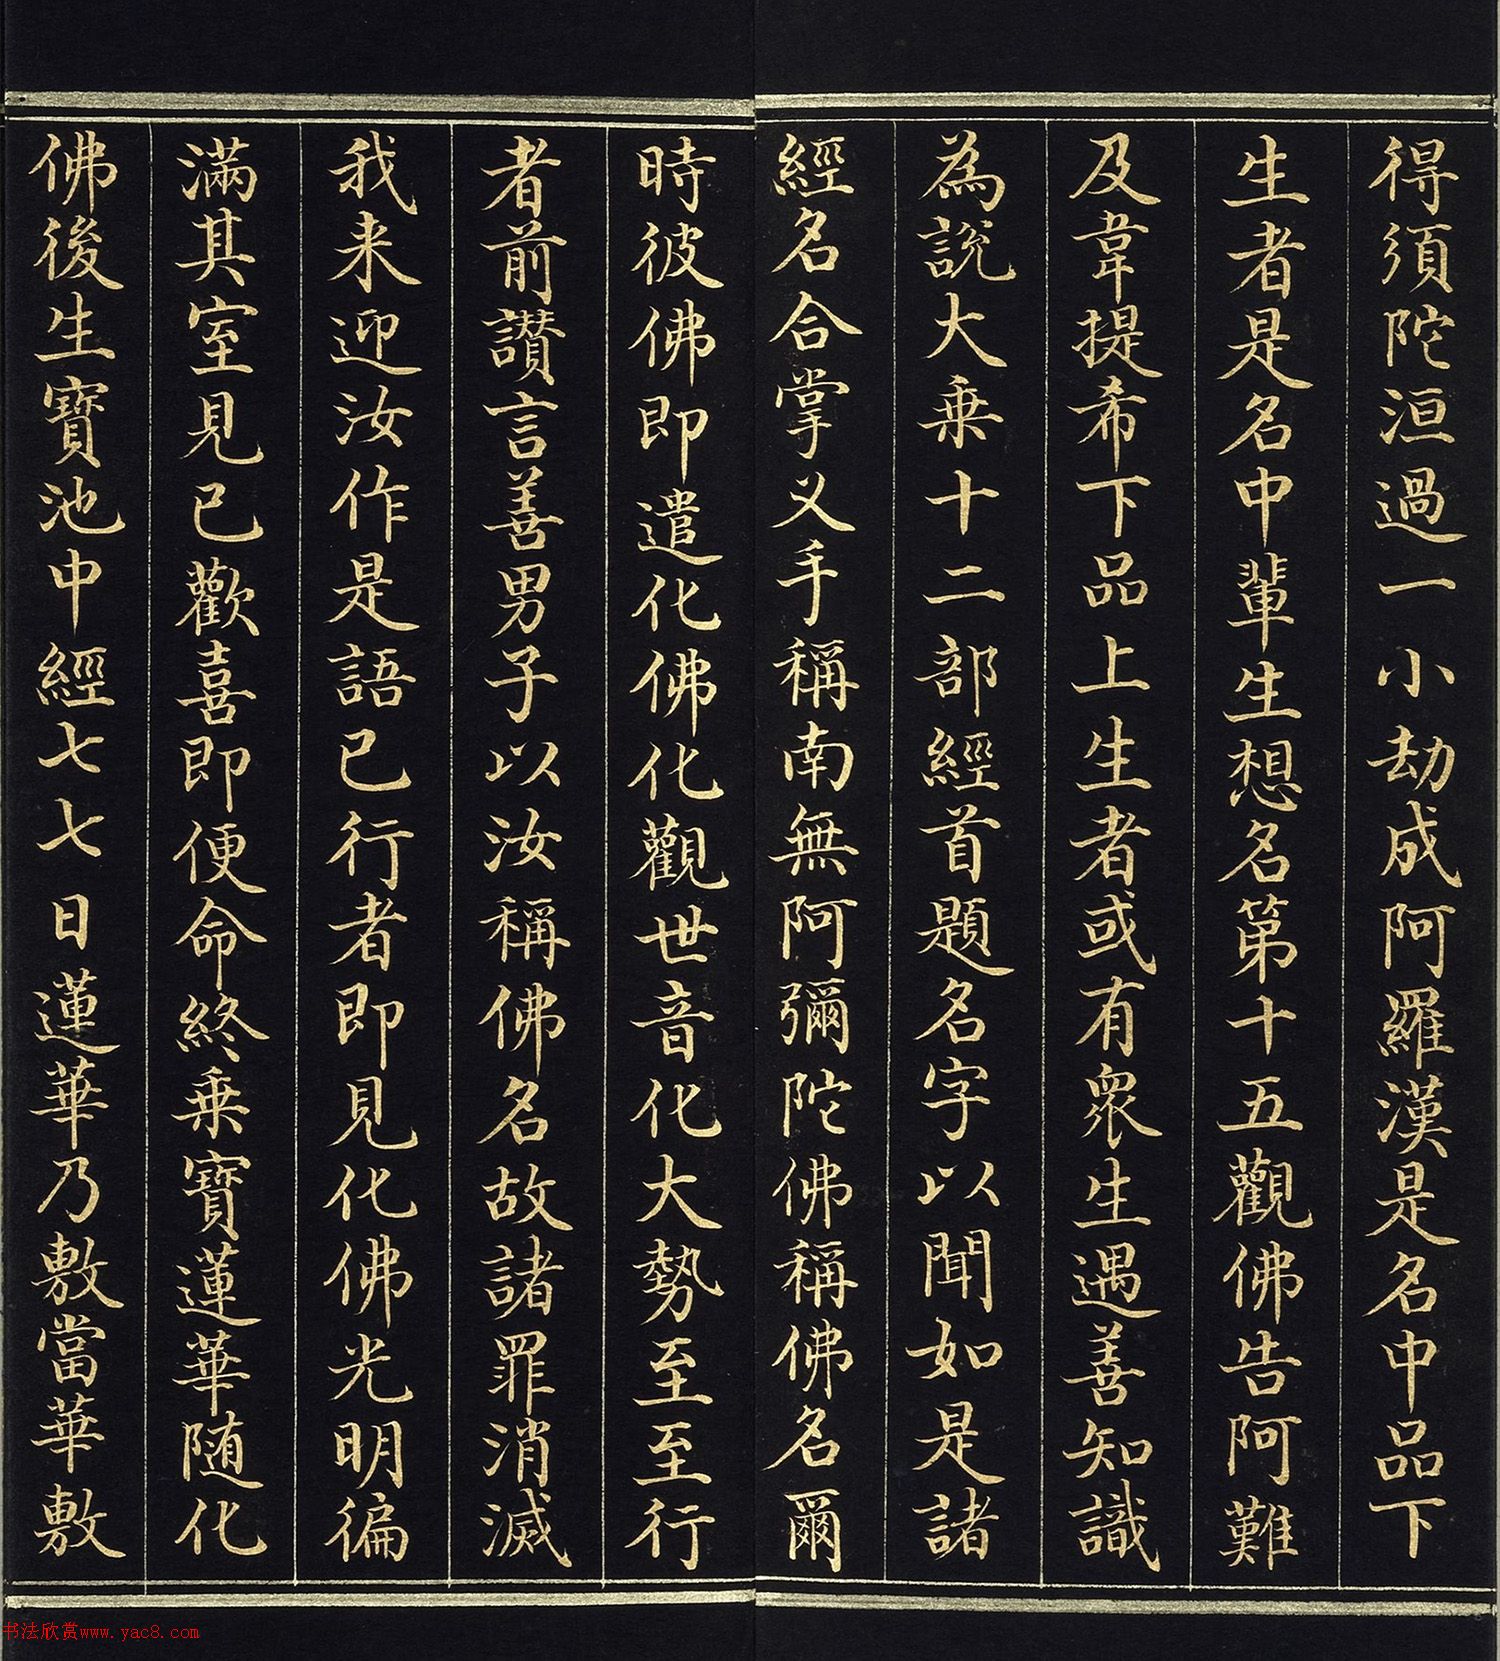 得須陀洹過一小劫成阿羅漢是名中品下
生者是名中輩生想名第十五觀佛告阿難
及韋提希下品上生者或有衆生遇善知識
為說大乗十二部經首題名字以聞如是諸
經名合掌义手稱南無阿彌陀佛稱佛名爾
時彼佛即遣化佛化觀世音化大勢至至行
者前讚言善男子以汝稱佛名故諸罪消滅
我来迎汝作是語已行者即見化佛光明徧
滿其室見已歡喜即便命終乗寶蓮華随化
佛後生寶池中經七七日蓮華乃敷當華敷
书法欣赏www.yac8.com